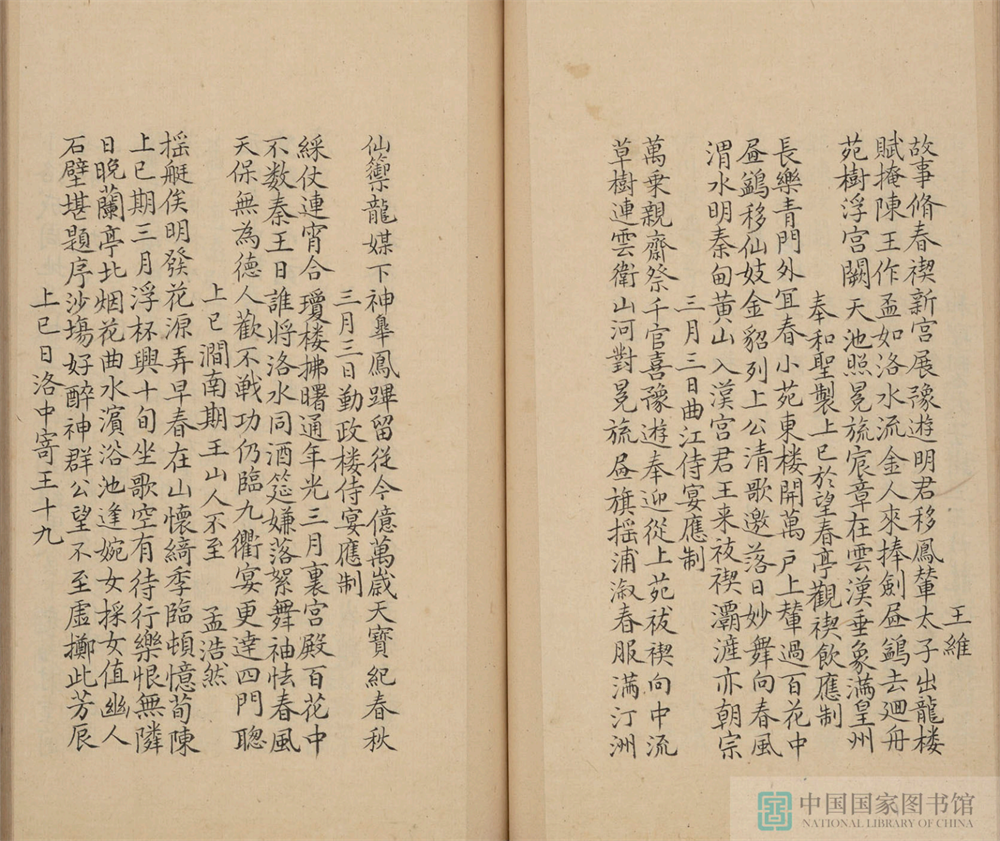 王維
故事脩春禊新宮展豫遊明君移鳳輦太子出龍楼
賦掩陳王作盃如洛水流金人來捧劍昼鷁去廻舟
苑樹浮宮闕天池照冕旒宸章在雲漢垂象滿皇州
奉和聖製上巳於望春亭觀禊飲應制
長樂青門外宜春小苑東楼開萬戶上輦過百花中
昼鷁移仙妓金貂列上公清歌邀落日妙舞向春風
渭水明秦甸黃山入漢宮君王来祓禊灞滻亦朝宗
三月三日曲江侍宴應制
萬乗親齋祭千官喜豫遊奉迎從上苑祓禊向中流
草樹連雲衛山河對冕旒昼旗揺浦溆春服満汀洲
仙籞龍媒下神臯鳳蹕留従今億萬歳天寶紀春秋
三月三日勤政楼侍宴應制
綵仗連宵合瓊楼拂曙通年光三月裏宮殿百花中
不数秦王日誰將洛水同酒筵嫌落絮舞袖怯春風
天保無為德人歡不戦功仍臨九衢宴更達四門聰
上巳澗南期王山人不至 孟浩然
揺艇俟明發花源弄早春在山懷綺季臨頓憶荀陳
上巳期三月浮杯興十旬坐歌空有待行樂恨無隣
日晚蘭亭北烟花曲水濵浴池逢婉女採女值幽人
石壁堪題序沙塲好醉神群公望不至虛擲此芳辰
上巳日洛中寄王十九
中国国家图书馆
NATIONAL LIBRARY OF CHINA